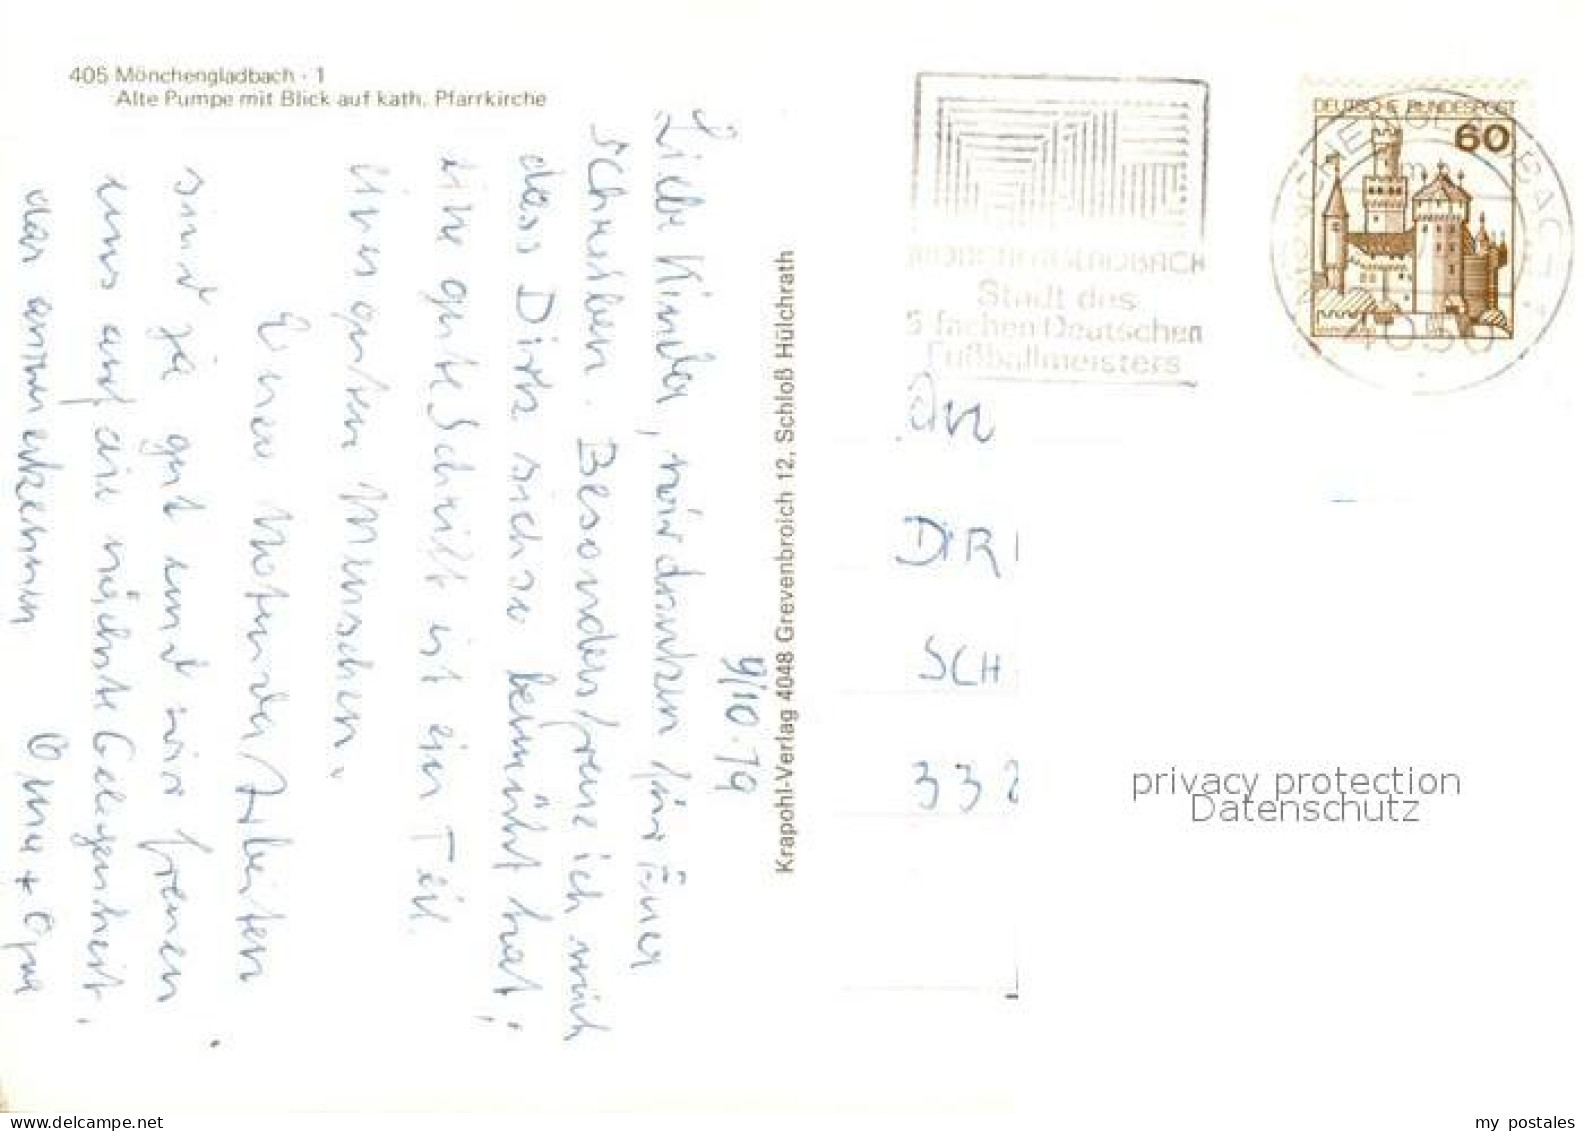 405 Mönchengladbach · 1
Alte Pumpe mit Blick auf kath. Pfarrkirche
9/10.79
Liebe Kinder, wir danken für Euer
Schreiben. Besonders freue ich mich
dass Dirk sich so bemüht hat,
eine gute Schrift ist ein Teil
eines guten Menschen.
Eure Noten der Arbeiten
sind ja gut und wir freuen
uns auf die nächste Gelegenheit,
das anzuerkennen Oma + Opa
Krapohl-Verlag 4048 Grevenbroich 12, Schloß Hülchrath
MÖNCHENGLADBACH
Stadt des
5-fachen Deutschen
Fußballmeisters
DEUTSCHE BUNDESPOST
60
MÖNCHENGLADBACH 1
4050
An
DIR
SCH
332
privacy protection
Datenschutz
my postales
www.delcampe.net